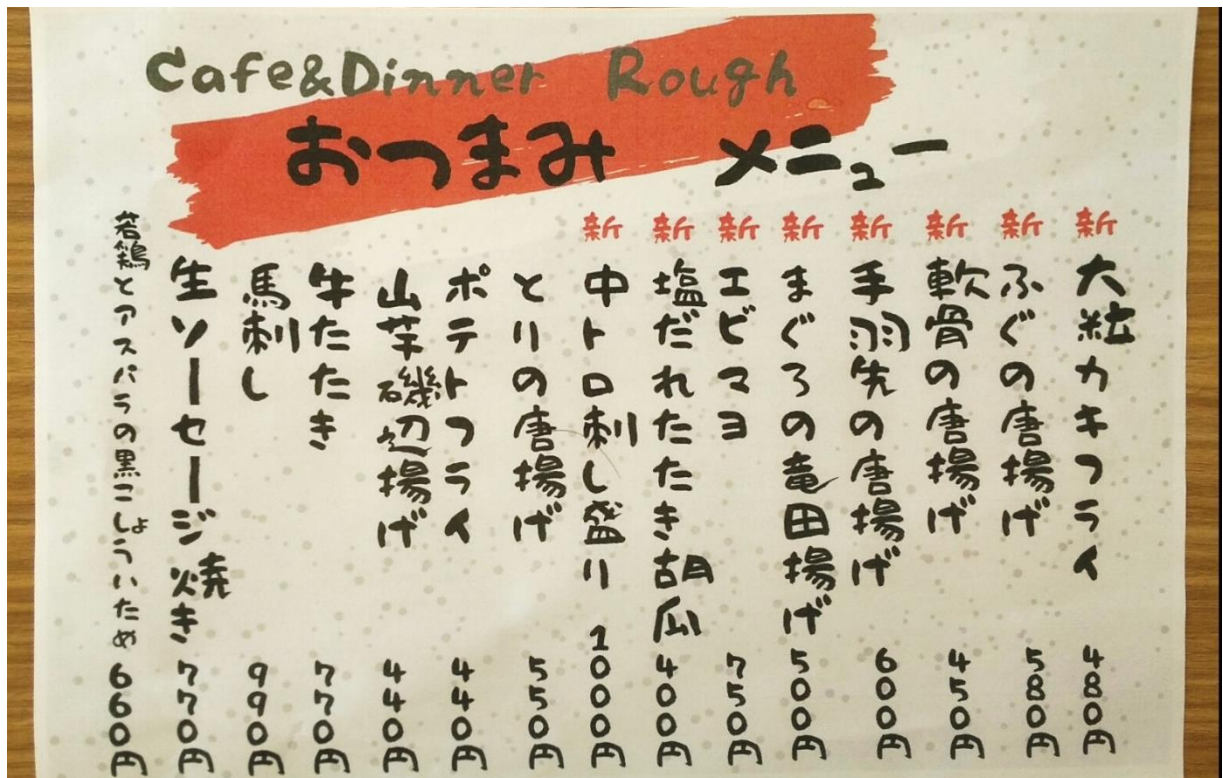 Cafe&Dinner Rough
おつまみ メニュー
新 大粒カキフライ 480円
新 ふぐの唐揚げ 580円
新 軟骨の唐揚げ 450円
新 手羽先の唐揚げ 600円
新 まぐろの竜田揚げ 500円
新 エビマヨ 750円
新 塩だれたたき胡瓜 400円
新 中トロ刺し盛り 1000円
とりの唐揚げ 550円
ポテトフライ 440円
山芋磯辺揚げ 440円
牛たたき 770円
馬刺し 990円
生ソーセージ焼き 770円
若鶏とアスパラの黒こしょういため 660円